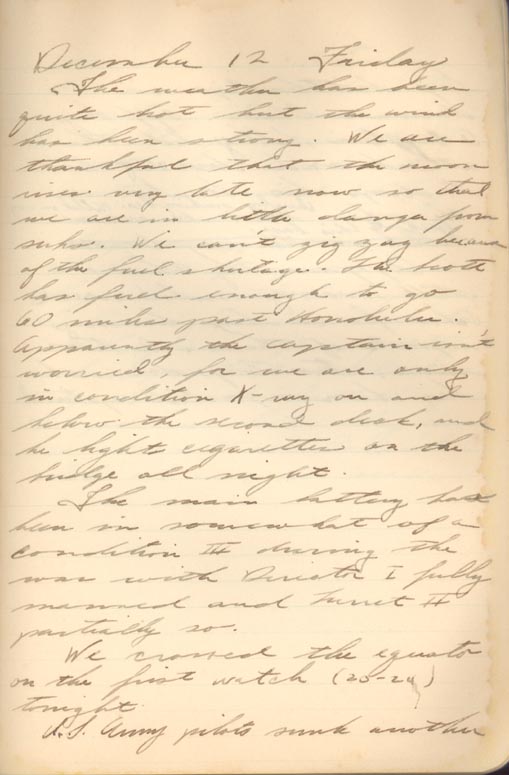 December 12 Friday
The weather has been
quite hot but the wind
has been strong. We are
thankful that the moon
rises very late now so that
we are in little danger from
subs. We can't zig zag because
of the fuel shortage. The boat
has fuel enough to go
60 miles past Honolulu.
Apparently the captain isn't
worried, for we are only
in condition X-ray on and
below the second deck, and
he lights cigarettes on the
bridge all night.
The main battery has
been in somewhat of a
condition III during the
war with Director I fully
manned and Turret II
partially so.
We crossed the equator
on the first watch (20-24)
tonight.
U.S. Army pilots sunk another